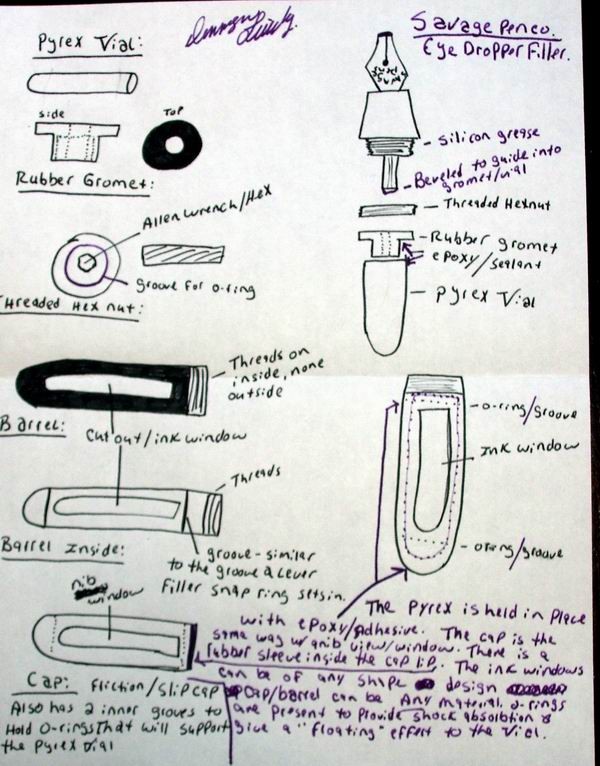 Pyrex Vial:
Savage Penco.
Eye Dropper Filler.
side
Top
Rubber Gromet:
Silicon grease
Beveled to guide into
gromet/vial
Threaded Hexnut
Rubber gromet
epoxy/sealant
pyrex Vial
Allen wrench/Hex
groove for o-ring
Threaded Hex nut:
Threads on
inside, none
outside
Barrel:
Cut out/ink window
o-ring/Groove
Ink window
o-ring/groove
Threads
Barrel Inside:
groove-similar
to the groove a Lever
Filler snap ring sets in.
nib
window
The Pyrex is held in place
with epoxy/Adhesive. The cap is the
same way w/a nib view/window. There is a
rubber sleeve inside the cap lip. The ink windows
can be of any shape design
cap/barrel can be Any material. o-rings
are present to provide shock absorbtion &
give a "floating" effect to the Vial.
Cap: Friction/slip cap
Also has 2 inner groves to
Hold O-rings That will support
the Pyrex vial